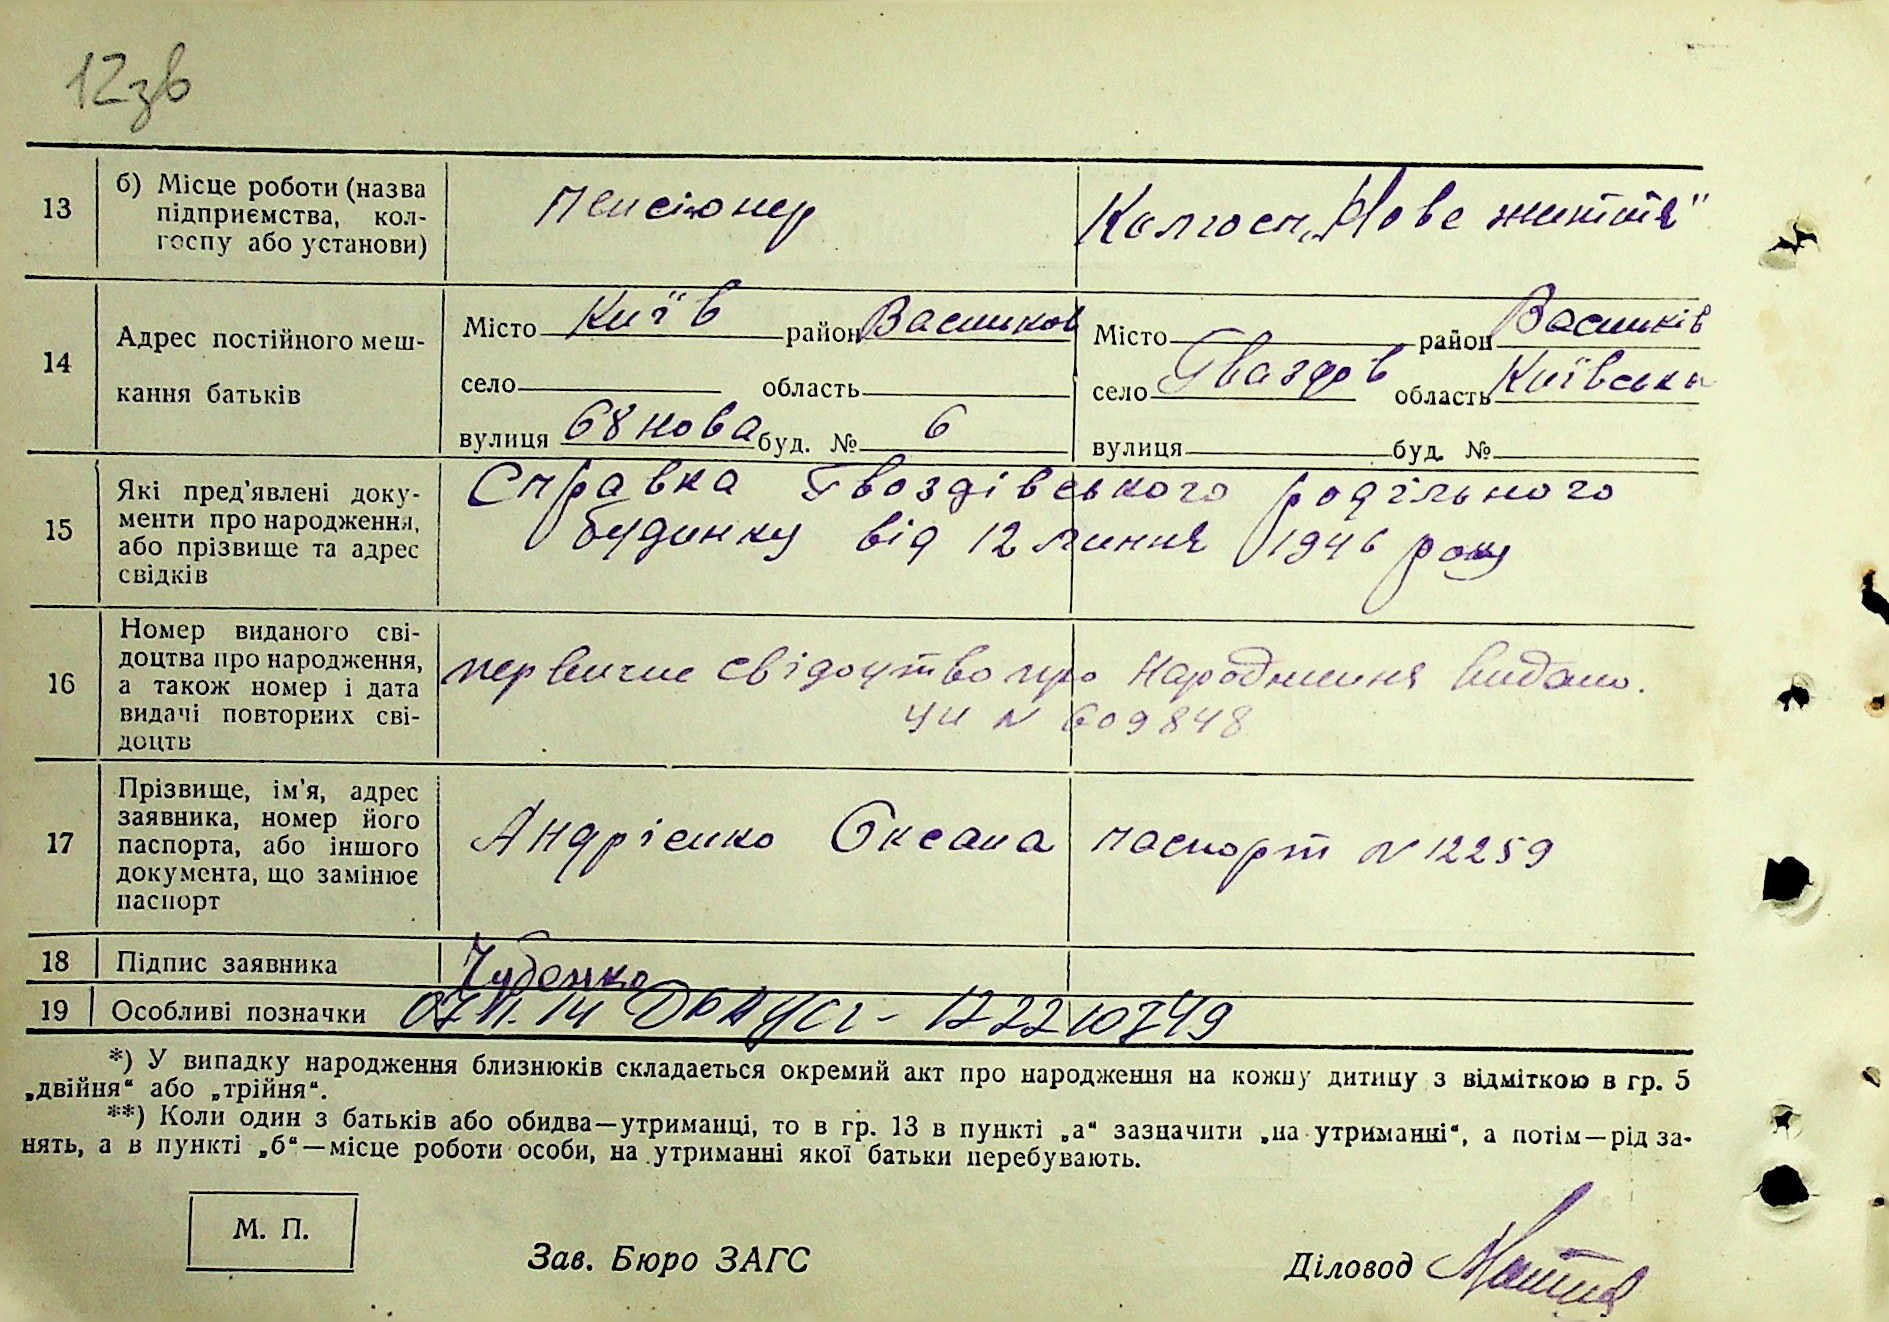 12зв
13 б) Місце роботи (назва підприємства, колгоспу або установи) пенсіонер Колгосп „Нове життя"
14 Адрес постійного мешкання батьків
Місто Київ район Васильков Місто район Васильків
село область село Гвоздів область Київська
вулиця 68 нова буд. № 6 вулиця буд. №
15 Які пред'явлені документи про народження, або прізвище та адрес свідків
Справка Гвоздівського родільного
будинку від 12 липня 1946 року
16 Номер виданого свідоцтва про народження, а також номер і дата видачі повторних свідоцтв
первичне свідоцтво про народження видано.
УИ N 609848
17 Прізвище, ім'я, адрес заявника, номер його паспорта, або іншого документа, що замінює паспорт
Андрієнко Оксана паспорт N 12259
18 Підпис заявника
19 Особливі позначки 14 ДРАЦСГ - 122210749
*) У випадку народження близнюків складається окремий акт про народження на кожну дитину з відміткою в гр. 5
„двійня“ або „трійня“.
**) Коли один з батьків або обидва—утриманці, то в гр. 13 в пункті „а“ зазначити „на утриманні“, а потім—рід за-
нять, а в пункті „б“—місце роботи особи, на утриманні якої батьки перебувають.
М. П.
Зав. Бюро ЗАГС Діловод